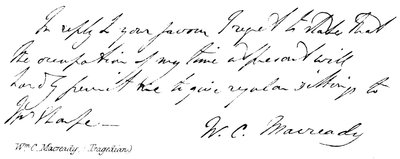 In reply to your favour I regret to state that
the occupation of my time at present will
hardly permit me to give regular sittings to
Mr Sharpe —
W. C. Macready
Wm. C. Macready, (Tragedian)